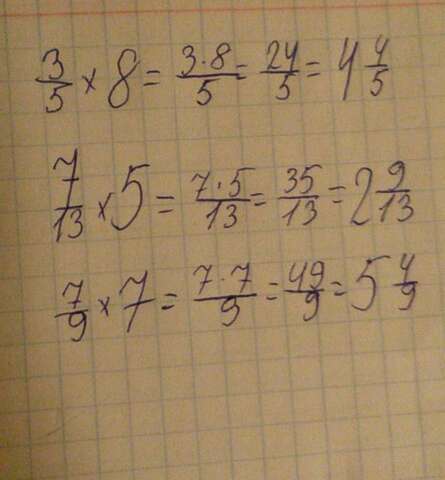 3/5 × 8 = 3·8/5 = 24/5 = 4 4/5
7/13 × 5 = 7·5/13 = 35/13 = 2 9/13
7/9 × 7 = 7·7/9 = 49/9 = 5 4/9